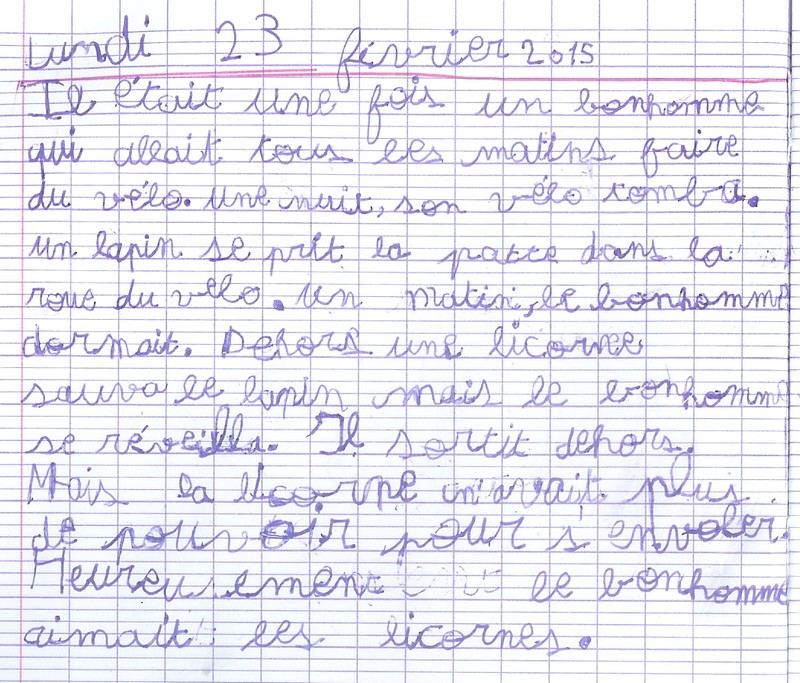 Lundi 23 février 2015
Il était une fois un bonhomme
qui allait tous les matins faire
du vélo. Une nuit, son vélo tomba.
un lapin se prit la patte dans la
roue du vélo. Un matin, le bonhomme
dormait. Dehors une licorne
sauva le lapin mais le bonhomme
se réveilla. Il sortit dehors.
Mais la licorne n'avait plus
de pouvoir pour s'envoler.
Heureusement le bonhomme
aimait les licornes.